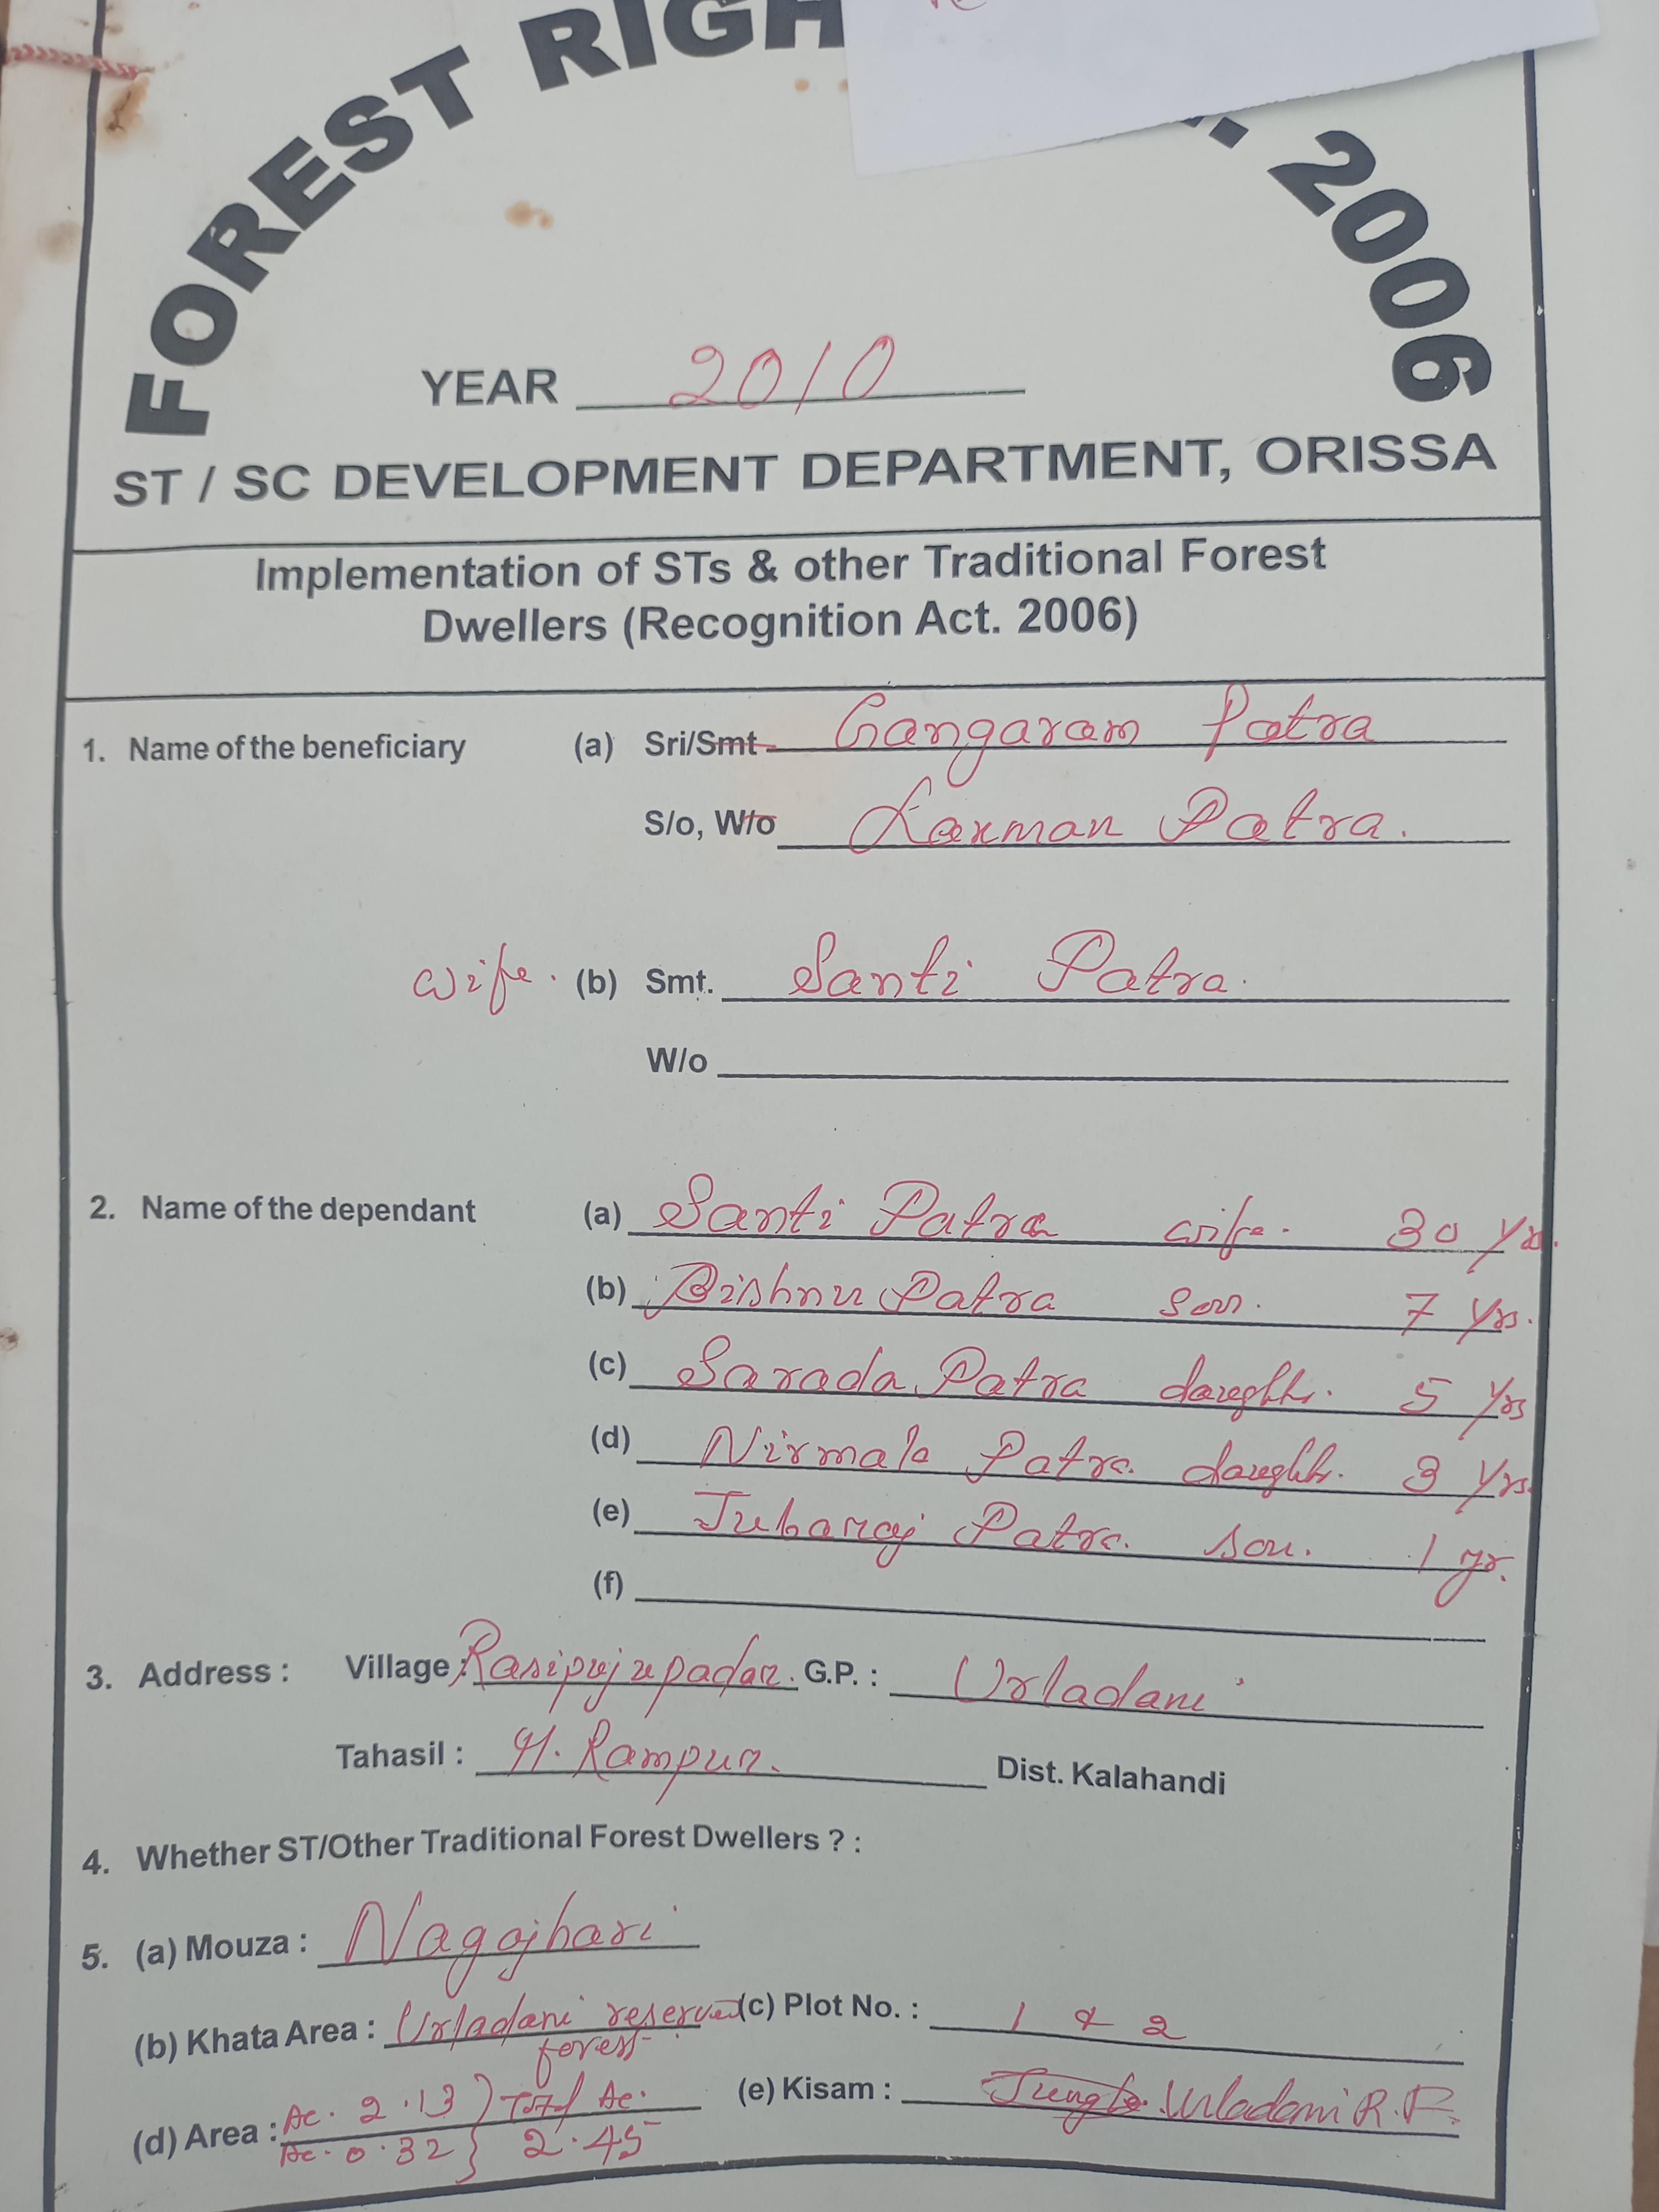 FOREST RIGH . 2006
YEAR 2010
ST / SC DEVELOPMENT DEPARTMENT, ORISSA
Implementation of STs & other Traditional Forest
Dwellers (Recognition Act. 2006)
1. Name of the beneficiary (a) Sri/Smt Gangaram Patra
S/o, W/o Laxman Patra.
wife. (b) Smt. Santi Patra.
W/o
2. Name of the dependant (a) Santi Patra wife. 30 Yrs.
(b) Bishnu Patra son. 7 Yrs.
(c) Sarada Patra daughtr. 5 Yrs
(d) Nirmala Patra. daughtr. 3 Yrs.
(e) Jubaraj Patra. son. 1 yr.
(f)
3. Address : Village : Rasipujupadar. G.P. : Urladani
Tahasil : M. Rampur. Dist. Kalahandi
4. Whether ST/Other Traditional Forest Dwellers ? :
5. (a) Mouza : Nagajhari
(b) Khata Area : Urladani reserved (c) Plot No. : 1 & 2
forest
(d) Area : Ac. 2.13 } Total Ac. (e) Kisam : Jungle Urladani R.F.
Ac. 0.32 } 2.45